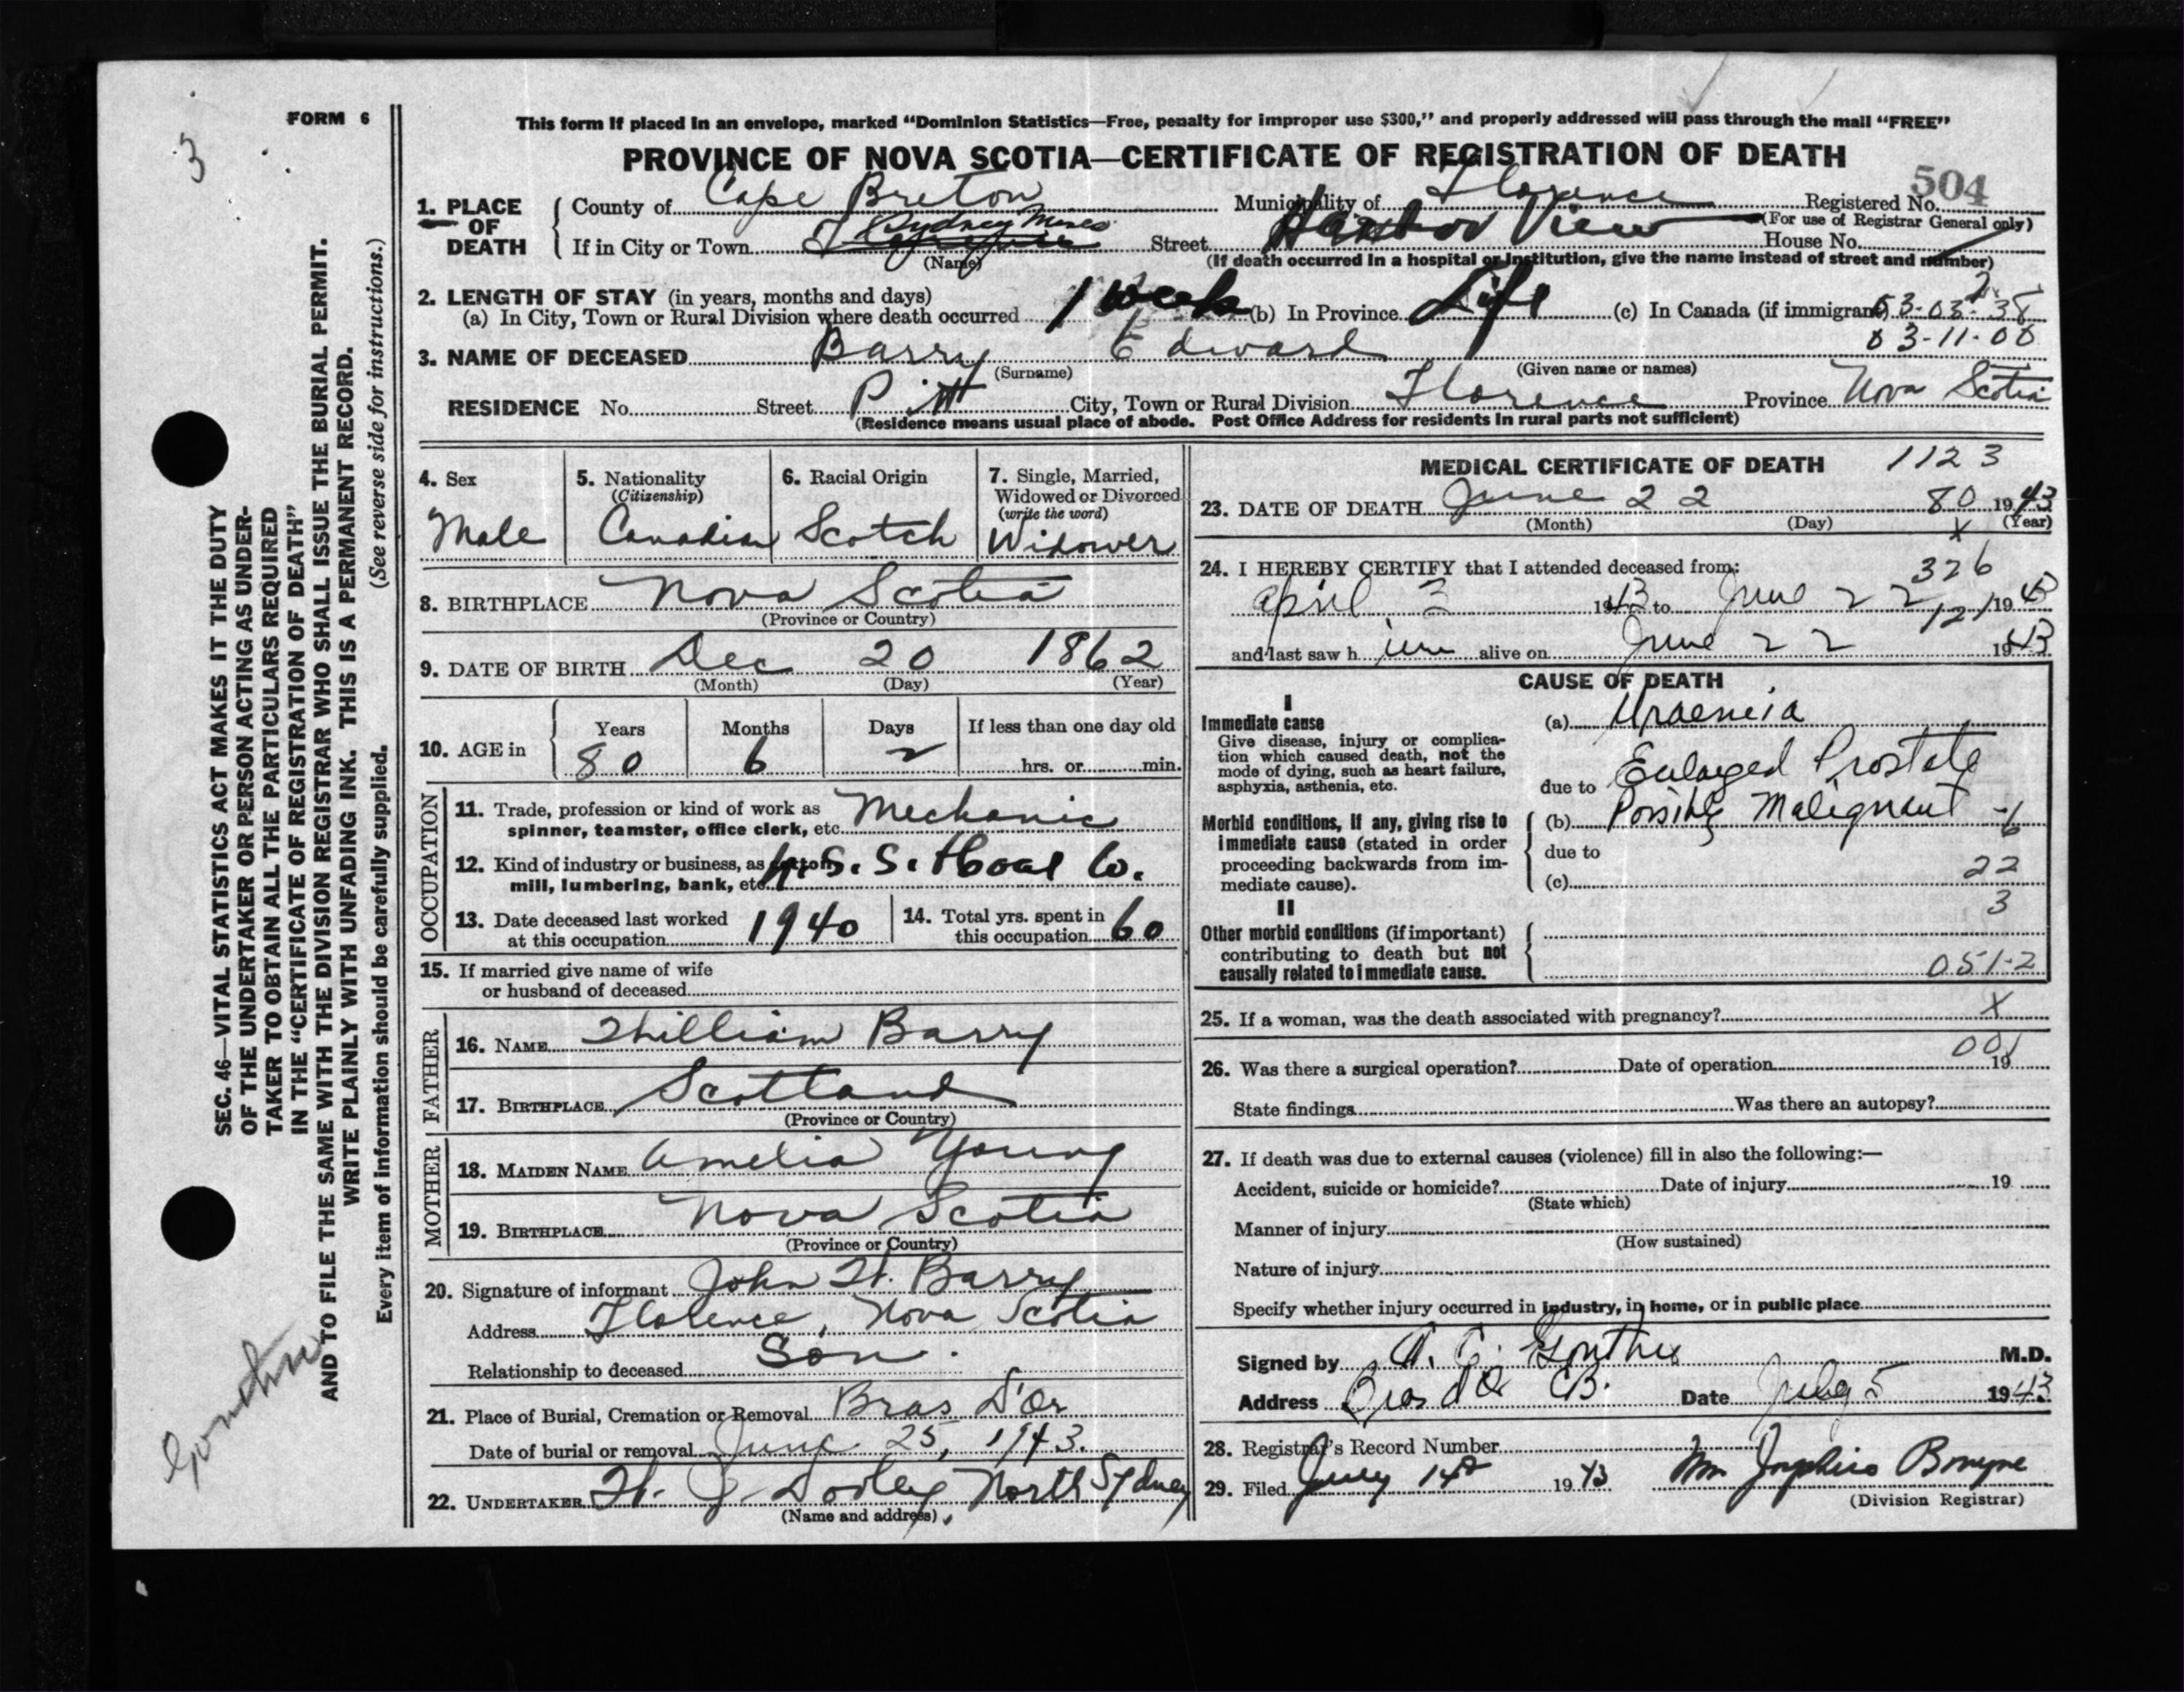 FORM 6
3
This form if placed in an envelope, marked "Dominion Statistics—Free, penalty for improper use $300," and properly addressed will pass through the mail "FREE"
PROVINCE OF NOVA SCOTIA—CERTIFICATE OF REGISTRATION OF DEATH
504
1. PLACE OF DEATH
County of Cape Breton Municipality of Florence Registered No.
(For use of Registrar General only)
If in City or Town Sydney Mines Street Harbor View House No.
(Name) (If death occurred in a hospital or institution, give the name instead of street and number)
2. LENGTH OF STAY (in years, months and days)
(a) In City, Town or Rural Division where death occurred 1 week (b) In Province Life (c) In Canada (if immigrant) 03-03-38
03-11-00
3. NAME OF DECEASED Barry Edward
(Surname) (Given name or names)
RESIDENCE No. Street Pitt City, Town or Rural Division Florence Province Nova Scotia
(Residence means usual place of abode. Post Office Address for residents in rural parts not sufficient)
4. Sex 5. Nationality 6. Racial Origin 7. Single, Married,
(Citizenship) Widowed or Divorced
(write the word)
Male Canadian Scotch Widower
8. BIRTHPLACE Nova Scotia
(Province or Country)
9. DATE OF BIRTH Dec 20 1862
(Month) (Day) (Year)
10. AGE in Years Months Days If less than one day old
80 6 2 hrs. or min.
OCCUPATION
11. Trade, profession or kind of work as
spinner, teamster, office clerk, etc. Mechanic
12. Kind of industry or business, as cotton
mill, lumbering, bank, etc. N.S.S. & Coal Co.
13. Date deceased last worked
at this occupation 1940
14. Total yrs. spent in
this occupation 60
15. If married give name of wife
or husband of deceased
FATHER
16. NAME William Barry
17. BIRTHPLACE Scotland
(Province or Country)
MOTHER
18. MAIDEN NAME Amelia Young
19. BIRTHPLACE Nova Scotia
(Province or Country)
20. Signature of informant John W. Barry
Address Florence, Nova Scotia
Relationship to deceased Son.
21. Place of Burial, Cremation or Removal Bras D'Or
Date of burial or removal June 25, 1943.
22. UNDERTAKER W. J. Dooley, North Sydney
(Name and address)
MEDICAL CERTIFICATE OF DEATH 1123
23. DATE OF DEATH June 22 80 1943
(Month) (Day) (Year)
x
24. I HEREBY CERTIFY that I attended deceased from:
326
April 3 1943 to June 22 1943
121
and last saw h im alive on June 22 1943
CAUSE OF DEATH
I
Immediate cause
Give disease, injury or complication which caused death, not the mode of dying, such as heart failure, asphyxia, asthenia, etc.
(a) Uraemia
due to Enlarged Prostate
Morbid conditions, if any, giving rise to immediate cause (stated in order proceeding backwards from immediate cause).
(b) Possibly Malignant
due to
(c) 22
3
II
Other morbid conditions (if important) contributing to death but not causally related to immediate cause.
051-2
25. If a woman, was the death associated with pregnancy? X
001
26. Was there a surgical operation? Date of operation 19
State findings Was there an autopsy?
27. If death was due to external causes (violence) fill in also the following:—
Accident, suicide or homicide? Date of injury 19
(State which)
Manner of injury
(How sustained)
Nature of injury
Specify whether injury occurred in industry, in home, or in public place
Signed by A. C. Gouthro M.D.
Address Bras d'Or CB. Date July 5 1943
28. Registrar's Record Number
29. Filed July 14 1943
(Division Registrar)
SEC. 46—VITAL STATISTICS ACT MAKES IT THE DUTY
OF THE UNDERTAKER OR PERSON ACTING AS UNDER-
TAKER TO OBTAIN ALL THE PARTICULARS REQUIRED
IN THE "CERTIFICATE OF REGISTRATION OF DEATH"
AND TO FILE THE SAME WITH THE DIVISION REGISTRAR WHO SHALL ISSUE THE BURIAL PERMIT.
WRITE PLAINLY WITH UNFADING INK. THIS IS A PERMANENT RECORD.
Every item of information should be carefully supplied. (See reverse side for instructions.)